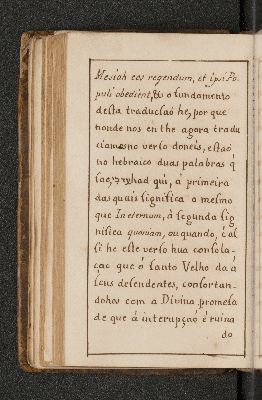 Mesiah eos regendum, et ipsi Po-
puli obedient, & o fundamento
desta traducsaõ he, por que
honde nos en the agora tradu
ciamos no verso doneis, estaõ
no hebraico duas palabras q̃
sae, yhad qui, à primeira
das quais significa o mesmo
que In eternum, à segunda sig
nifica quoniam, ou quando, è al
si he este verso hua consola-
çaõ que ó santo Velho dà á
seus desendentes, confortan-
dohos com a Divina promesa
de que á interupçaõ è ruina
do